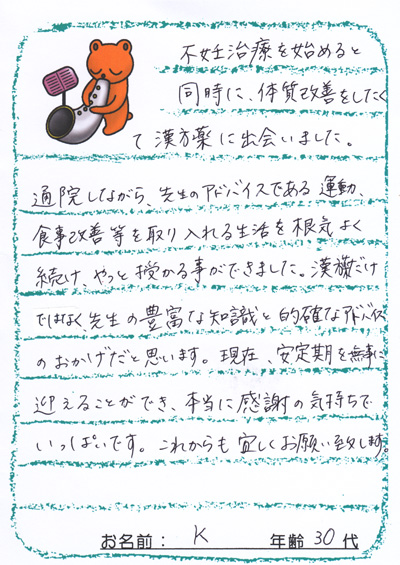 不妊治療を始めると
同時に、体質改善をしたく
て漢方薬に出会いました。
通院しながら、先生のアドバイスである運動、
食事改善等を取り入れる生活を根気よく
続け、やっと授かる事ができました。漢方薬だけ
ではなく先生の豊富な知識と的確なアドバイス
のおかげだと思います。現在、安定期を無事に
迎えることができ、本当に感謝の気持ちで
いっぱいです。これからも宜しくお願い致します。
お名前： K 年齢 30 代